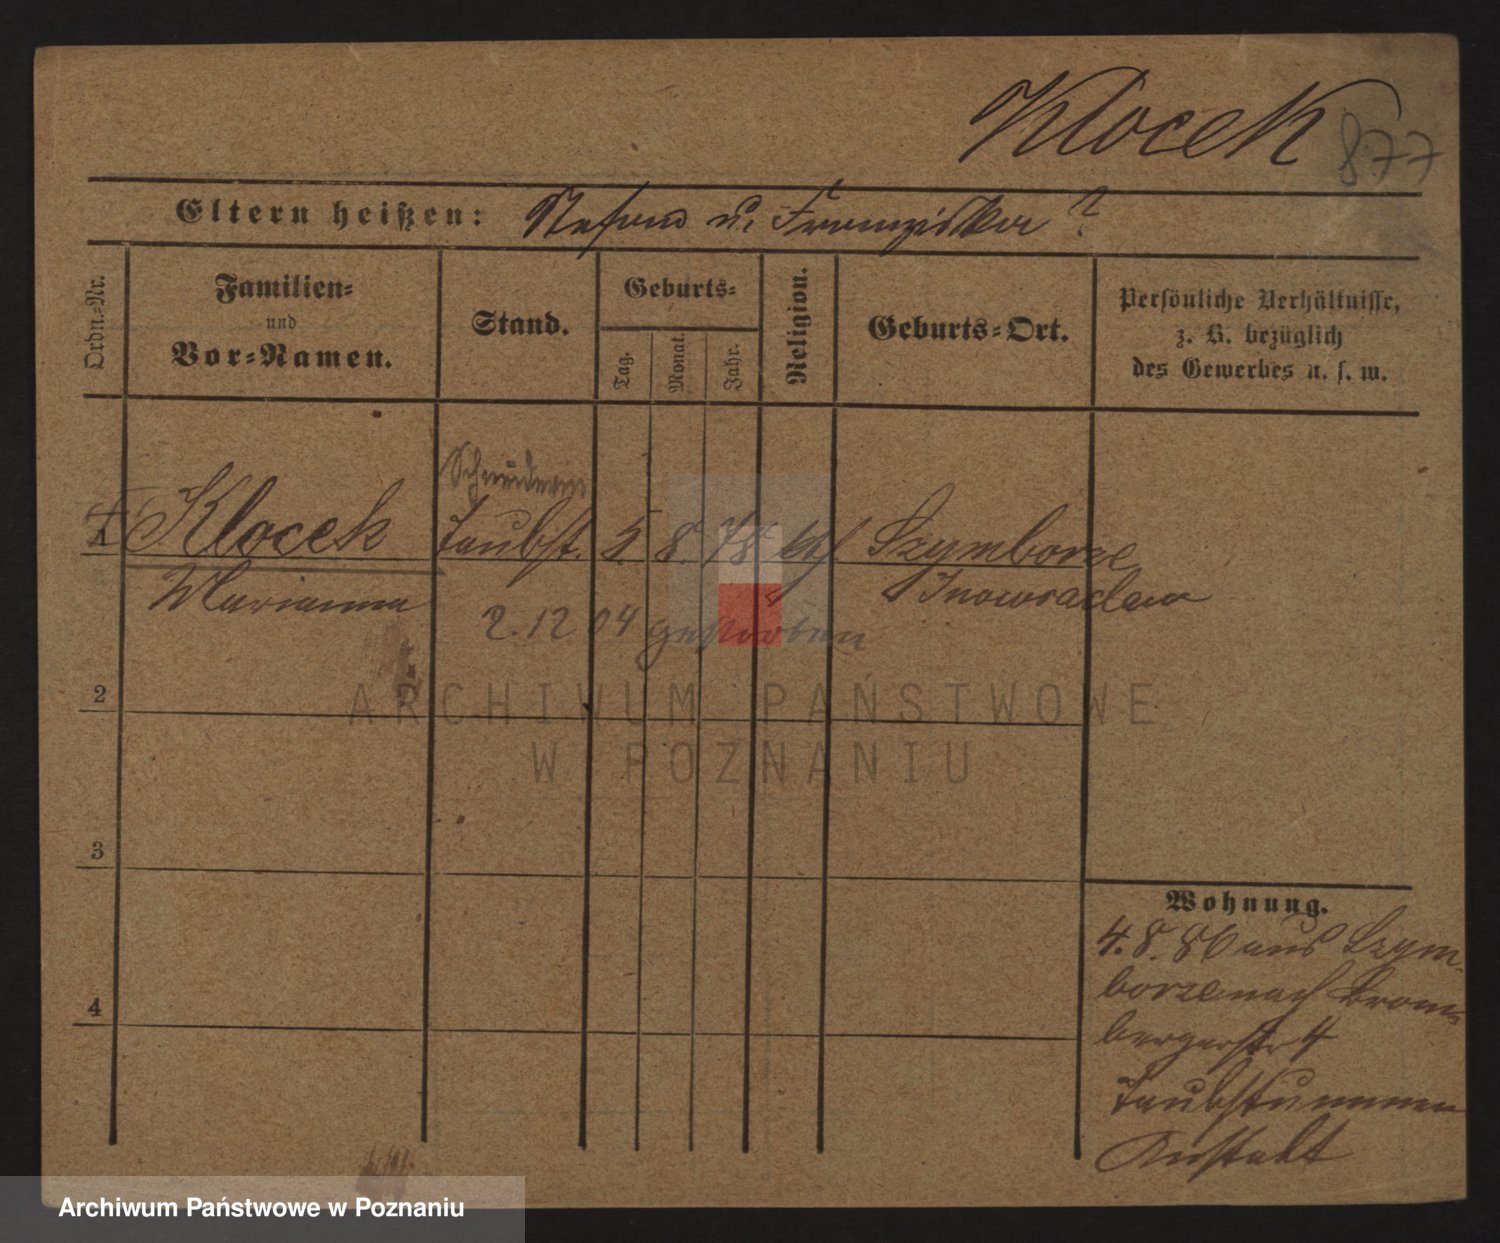 Klocek 877
Eltern heißen: Stefan u. Franziska ?
Ordn.-Nr.
Familien-
und
Vor-Namen.
Stand.
Geburts-
Tag.
Monat.
Jahr.
Religion.
Geburts-Ort.
Persönliche Verhältnisse,
z. B. bezüglich
des Gewerbes u. s. w.
Schneiderin
1 Klocek Taubst. 5. 8. 78 kth Szymborze
Marianna Inowraclaw
2.12 04 gestorben
2
3
4
Wohnung.
4. 8. 86 aus Szym-
borze nach Brom-
bergerstr 4
Taubstummen
Anstalt
ARCHIWUM PAŃSTWOWE
W POZNANIU
Archiwum Państwowe w Poznaniu